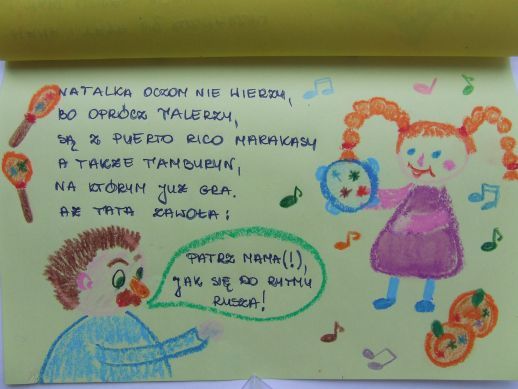 NATALKA OCZOM NIE WIERZY,
BO OPRÓCZ TALERZY,
SĄ Z PUERTO RICO MARAKASY
A TAKŻE TAMBURYN,
NA KTÓRYM JUŻ GRA.
AŻ TATA ZAWOŁA:
PATRZ MAMA(!),
JAK SIĘ DO RYTMU
RUSZA!